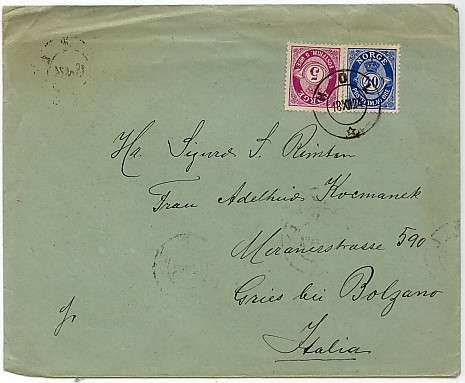 NORGE
40
5
NORGE
18 XII 24
Hr. Sigurd S. Rimsten
Frau Adelheid Kocmanek
Meranerstrasse 590
Gries bei Bolzano
Italia